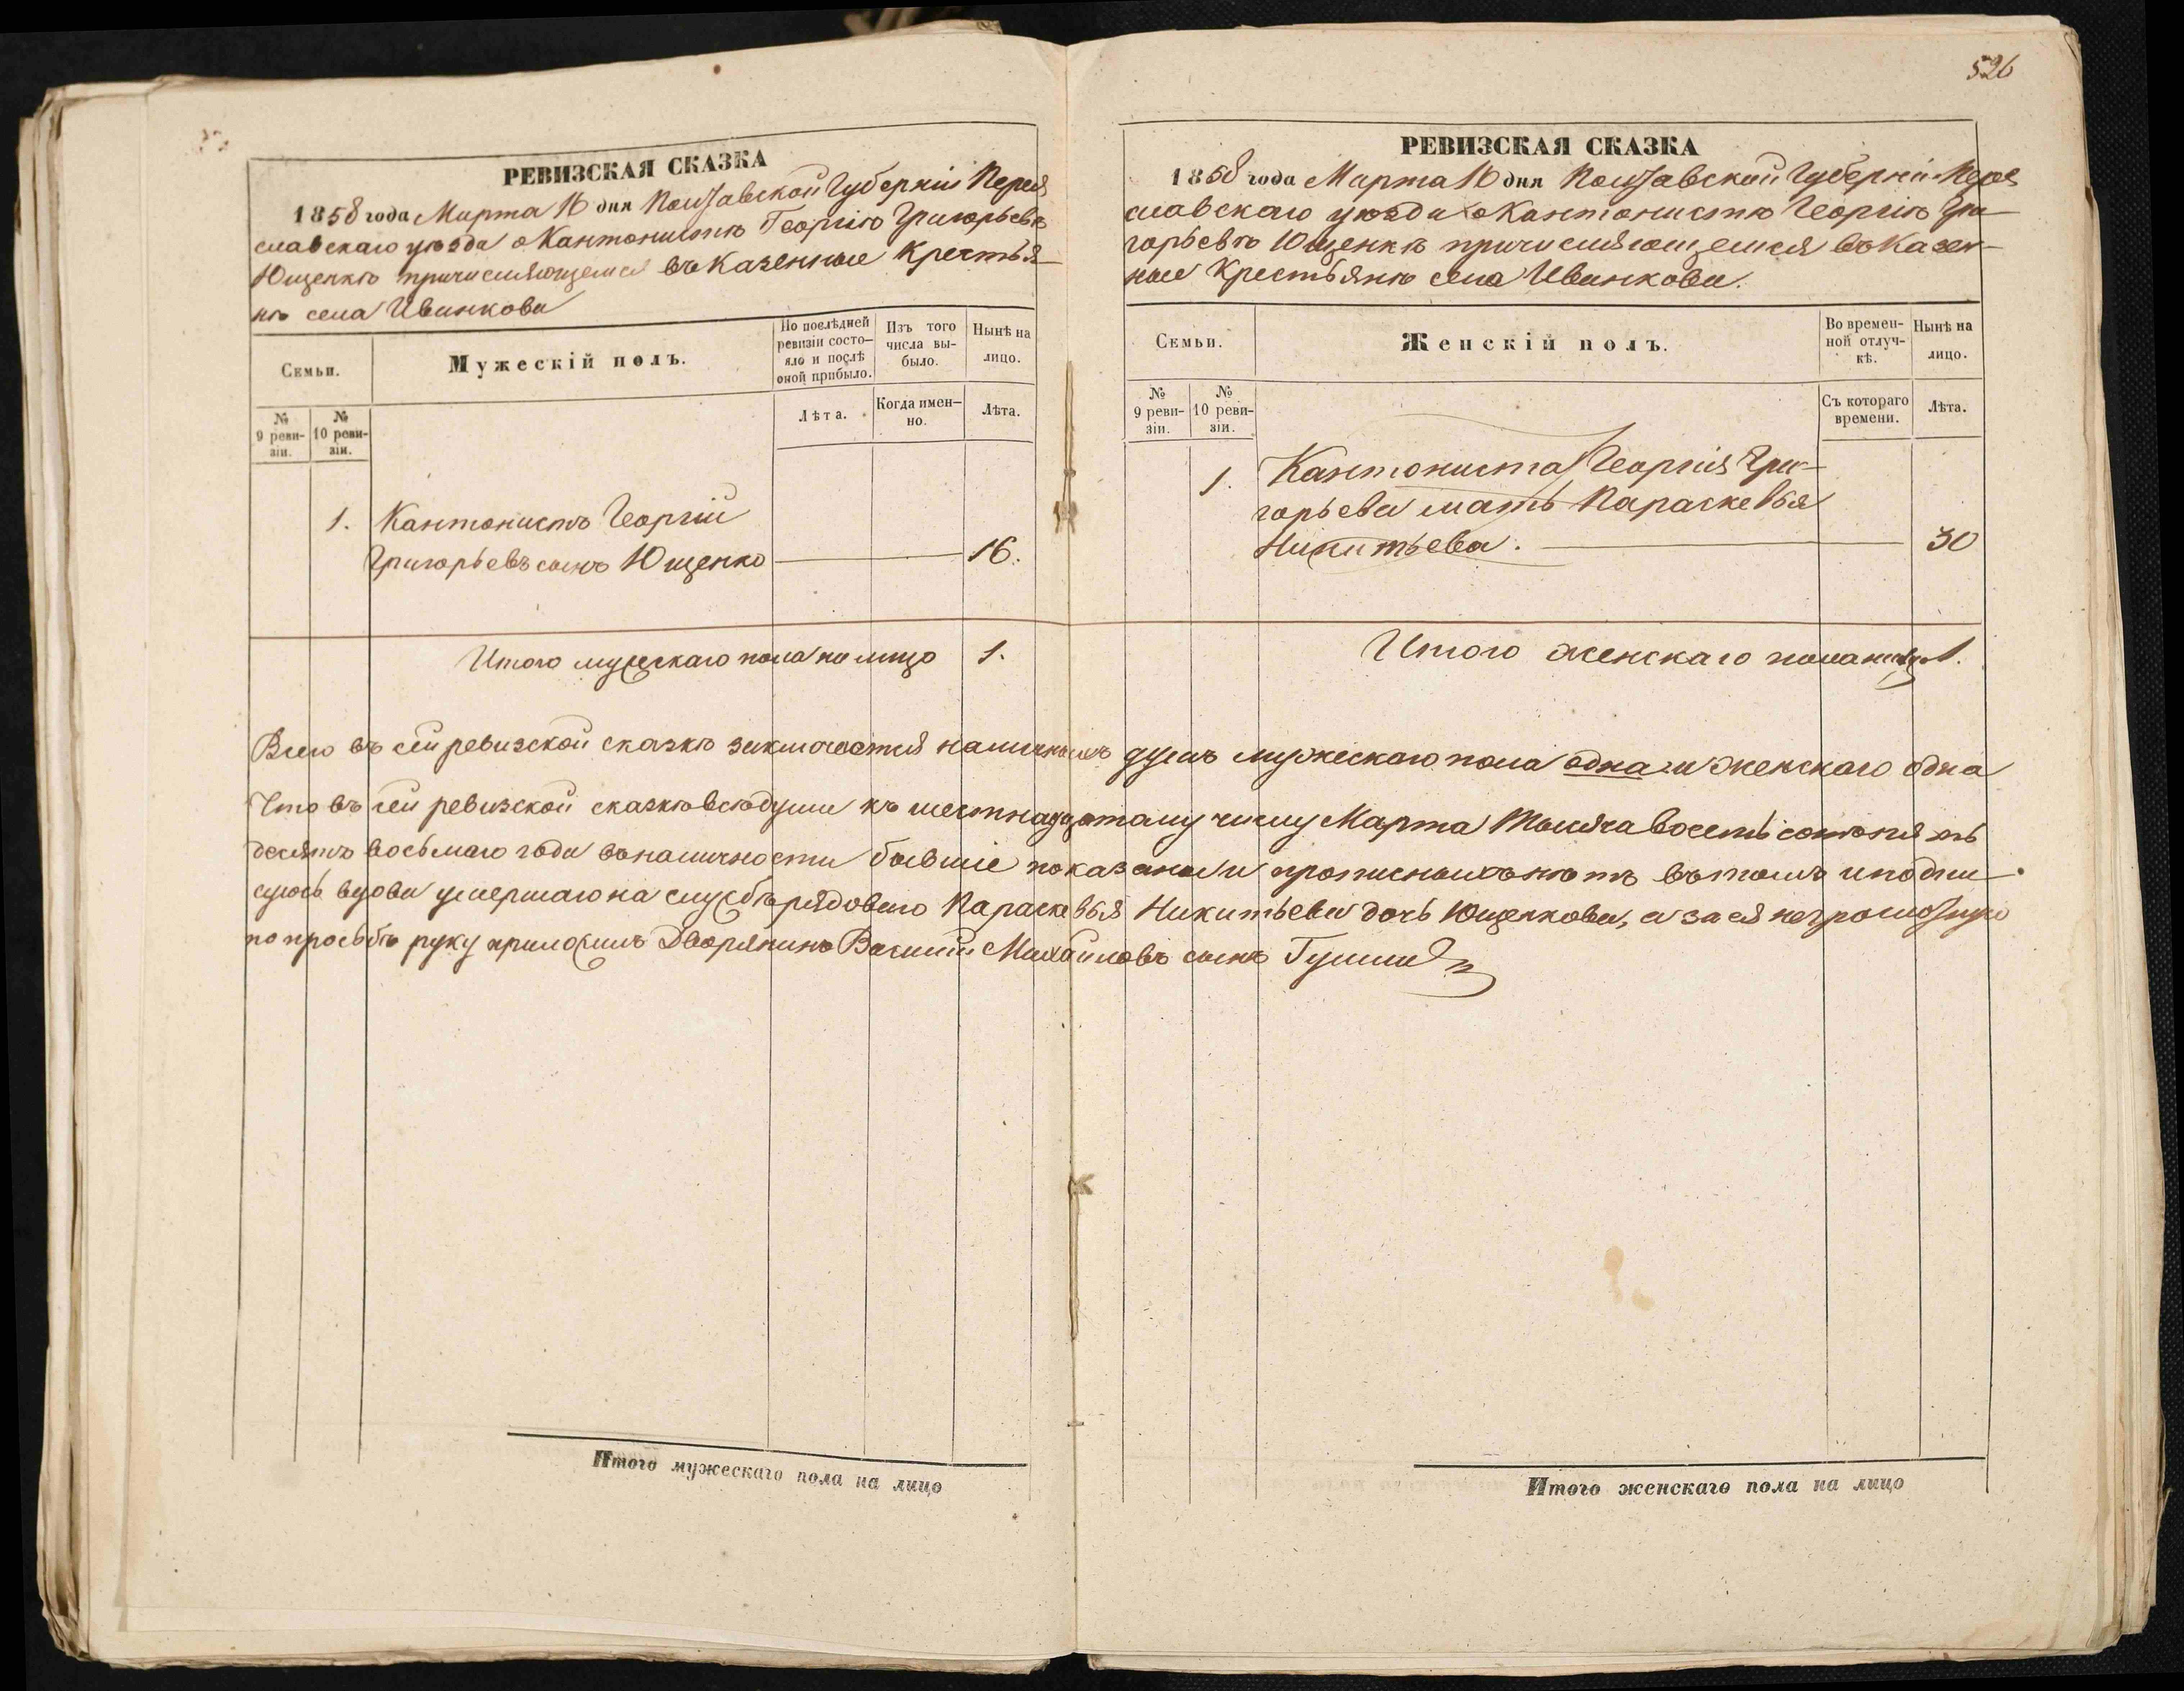 526
РЕВИЗСКАЯ СКАЗКА
1858 года Марта 16 дня Полтавской Губерніи Перея
славскаго уѣзда о Кантонистѣ Георгіѣ Григорьевѣ
Ющенкѣ причисляющемся въ Казенные Крестья-
нѣ села Иванкова
Семьи.
Мужескій полъ.
По послѣдней ревизіи состо-яло и послѣ оной прибыло.
Изъ того числа вы-было.
Нынѣ на лицо.
№ 9 реви-зіи.
№ 10 реви-зіи.
Лѣта.
Когда имен-но.
Лѣта.
1. Кантонистъ Георгій
Григорьевъ сынъ Ющенко 16.
Итого мужескаго пола на лицо 1.
РЕВИЗСКАЯ СКАЗКА
1858 года Марта 16 дня Полтавской Губерніи Перея
славскаго уѣзда о Кантонистѣ Георгіѣ Гри-
горьевѣ Ющенкѣ причисляющемся въ Казен-
ные Крестьянѣ села Иванкова.
Семьи.
Женскій полъ.
Во времен-ной отлуч-кѣ.
Нынѣ на лицо.
№ 9 реви-зіи.
№ 10 реви-зіи.
Съ котораго времени.
Лѣта.
1. Кантониста Георгія Гри-
горьева мать Параскевья
Никитьева. 30
Итого женскаго пола на лицо 1.
Всего въ сей ревизской сказкѣ заключается наличныхъ душъ мужескаго пола одна и женскаго одна
Что въ сей ревизской сказкѣ всѣ души къ шестнадцатому числу Марта тысяча восемь сотъ пять
десятъ восьмаго года въ наличности бывшіе показаны и прописныхъ нѣтъ въ томъ и подпи
суюсь вдова умершаго на службѣ рядоваго Параскевья Никитьева дочь Ющенкова, а за ея неграмотную
по просьбѣ руку приложилъ Дворянинъ Василій Михайловъ сынъ
Итого мужескаго пола на лицо
Итого женскаго пола на лицо